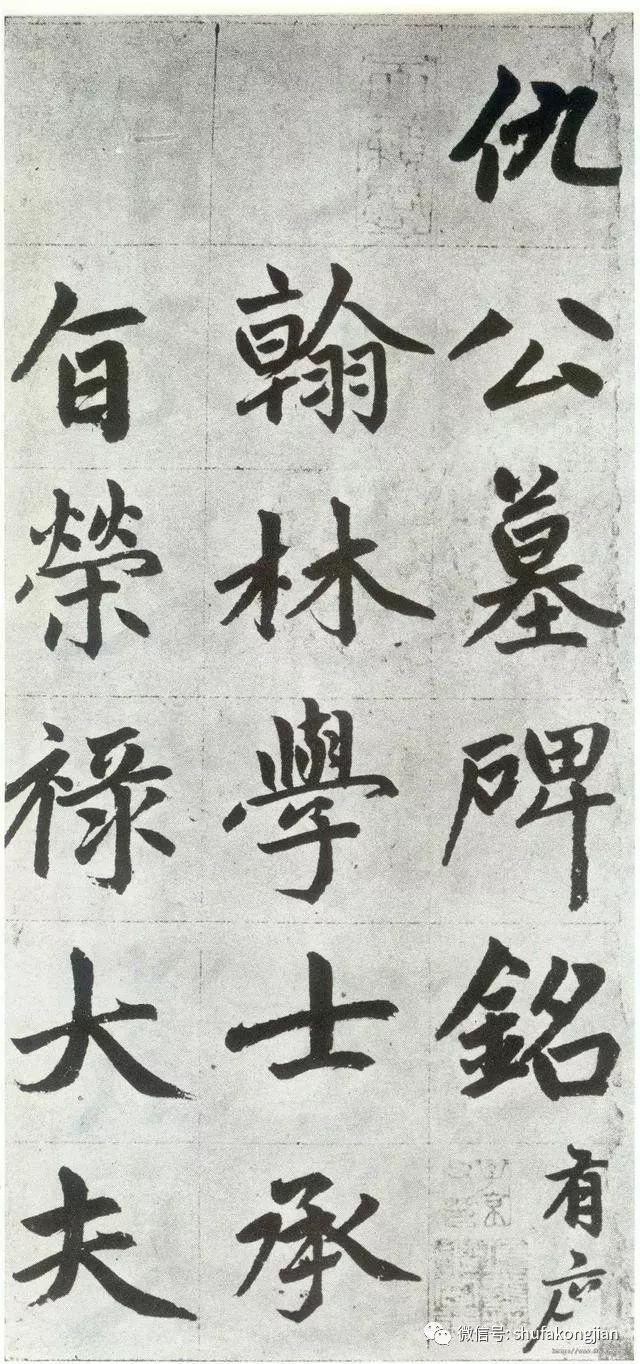 仇公墓碑銘有序
翰林學士承
旨榮祿大夫
微信号: shufakongjian